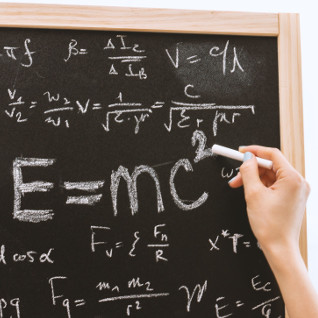 πf β = ΔI_C / ΔI_B V = c/λ
V₁/V₂ = W₂/W₁ V = 1/√(ε·μ) = C/√(ε_r μ_r)
E=mc²
d cos α F_v = { F_n / R X*T =
pq F_g = m₁ m₂ / r² E = E_C